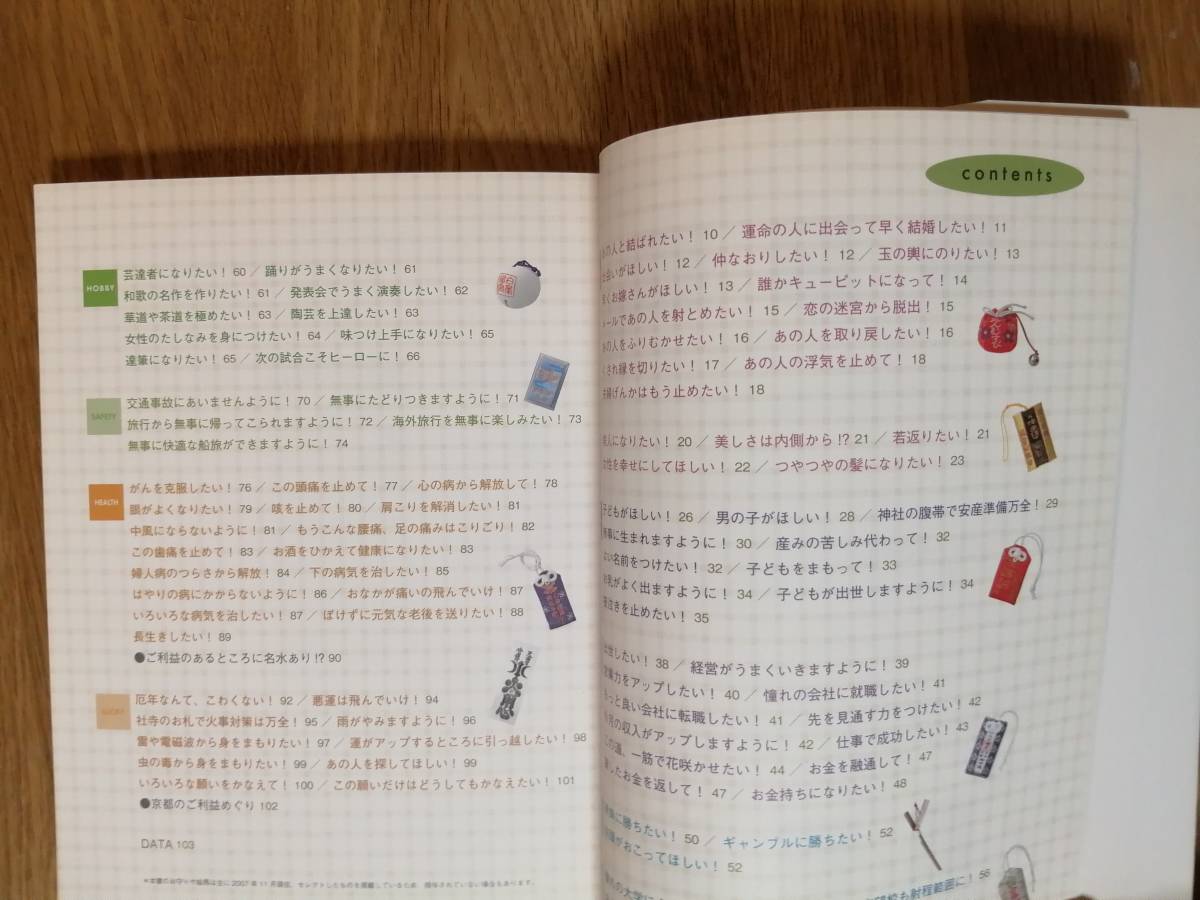 HOBBY
芸達者になりたい！ 60 ／ 踊りがうまくなりたい！ 61
和歌の名作を作りたい！ 61 ／ 発表会でうまく演奏したい！ 62
華道や茶道を極めたい！ 63 ／ 陶芸を上達したい！ 63
女性のたしなみを身につけたい！ 64 ／ 味つけ上手になりたい！ 65
達筆になりたい！ 65 ／ 次の試合こそヒーローに！ 66
SAFETY
交通事故にあいませんように！ 70 ／ 無事にたどりつきますように！ 71
旅行から無事に帰ってこられますように！ 72 ／ 海外旅行を無事に楽しみたい！ 73
無事に快適な船旅ができますように！ 74
HEALTH
がんを克服したい！ 76 ／ この頭痛を止めて！ 77 ／ 心の病から解放して！ 78
眼がよくなりたい！ 79 ／ 咳を止めて！ 80 ／ 肩こりを解消したい！ 81
中風にならないように！ 81 ／ もうこんな腰痛、足の痛みはこりごり！ 82
この歯痛を止めて！ 83 ／ お酒をひかえて健康になりたい！ 83
婦人病のつらさから解放！ 84 ／ 下の病気を治したい！ 85
はやりの病にかからないように！ 86 ／ おなかが痛いの飛んでいけ！ 87
いろいろな病気を治したい！ 87 ／ ぼけずに元気な老後を送りたい！ 88
長生きしたい！ 89
●ご利益のあるところに名水あり!? 90
LUCKY
厄年なんて、こわくない！ 92 ／ 悪運は飛んでいけ！ 94
社寺のお札で火事対策は万全！ 95 ／ 雨がやみますように！ 96
雷や電磁波から身をまもりたい！ 97 ／ 運がアップするところに引っ越したい！ 98
虫の毒から身をまもりたい！ 99 ／ あの人を探してほしい！ 99
いろいろな願いをかなえて！ 100 ／ この願いだけはどうしてもかなえたい！ 101
●京都のご利益めぐり 102
DATA 103
contents
の人と結ばれたい！ 10 ／ 運命の人に出会って早く結婚したい！ 11
会いがほしい！ 12 ／ 仲なおりしたい！ 12 ／ 玉の輿にのりたい！ 13
くお嫁さんがほしい！ 13 ／ 誰かキューピットになって！ 14
ールであの人を射とめたい！ 15 ／ 恋の迷宮から脱出！ 15
の人をふりむかせたい！ 16 ／ あの人を取り戻したい！ 16
され縁を切りたい！ 17 ／ あの人の浮気を止めて！ 18
婦げんかはもう止めたい！ 18
人になりたい！ 20 ／ 美しさは内側から!? 21 ／ 若返りたい！ 21
性を幸せにしてほしい！ 22 ／ つやつやの髪になりたい！ 23
子どもがほしい！ 26 ／ 男の子がほしい！ 28 ／ 神社の腹帯で安産準備万全！ 29
事に生まれますように！ 30 ／ 産みの苦しみ代わって！ 32
い名前をつけたい！ 32 ／ 子どもをまもって！ 33
乳がよく出ますように！ 34 ／ 子どもが出世しますように！ 34
泣きを止めたい！ 35
世したい！ 38 ／ 経営がうまくいきますように！ 39
力をアップしたい！ 40 ／ 憧れの会社に就職したい！ 41
っと良い会社に転職したい！ 41 ／ 先を見通す力をつけたい！ 42
の収入がアップしますように！ 42 ／ 仕事で成功したい！ 43
の道、一筋で花咲かせたい！ 44 ／ お金を融通して！ 47
したお金を返して！ 47 ／ お金持ちになりたい！ 48
に勝ちたい！ 50 ／ ギャンブルに勝ちたい！ 52
がおこってほしい！ 52
も射程範囲に！ 56